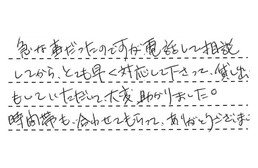 急な事だったのですが電話して相談
してから、とても早く対応して下さって、貸し出
もしていただいて大変助かりました。
時間帯も、合わせてもらって、ありがとうござま